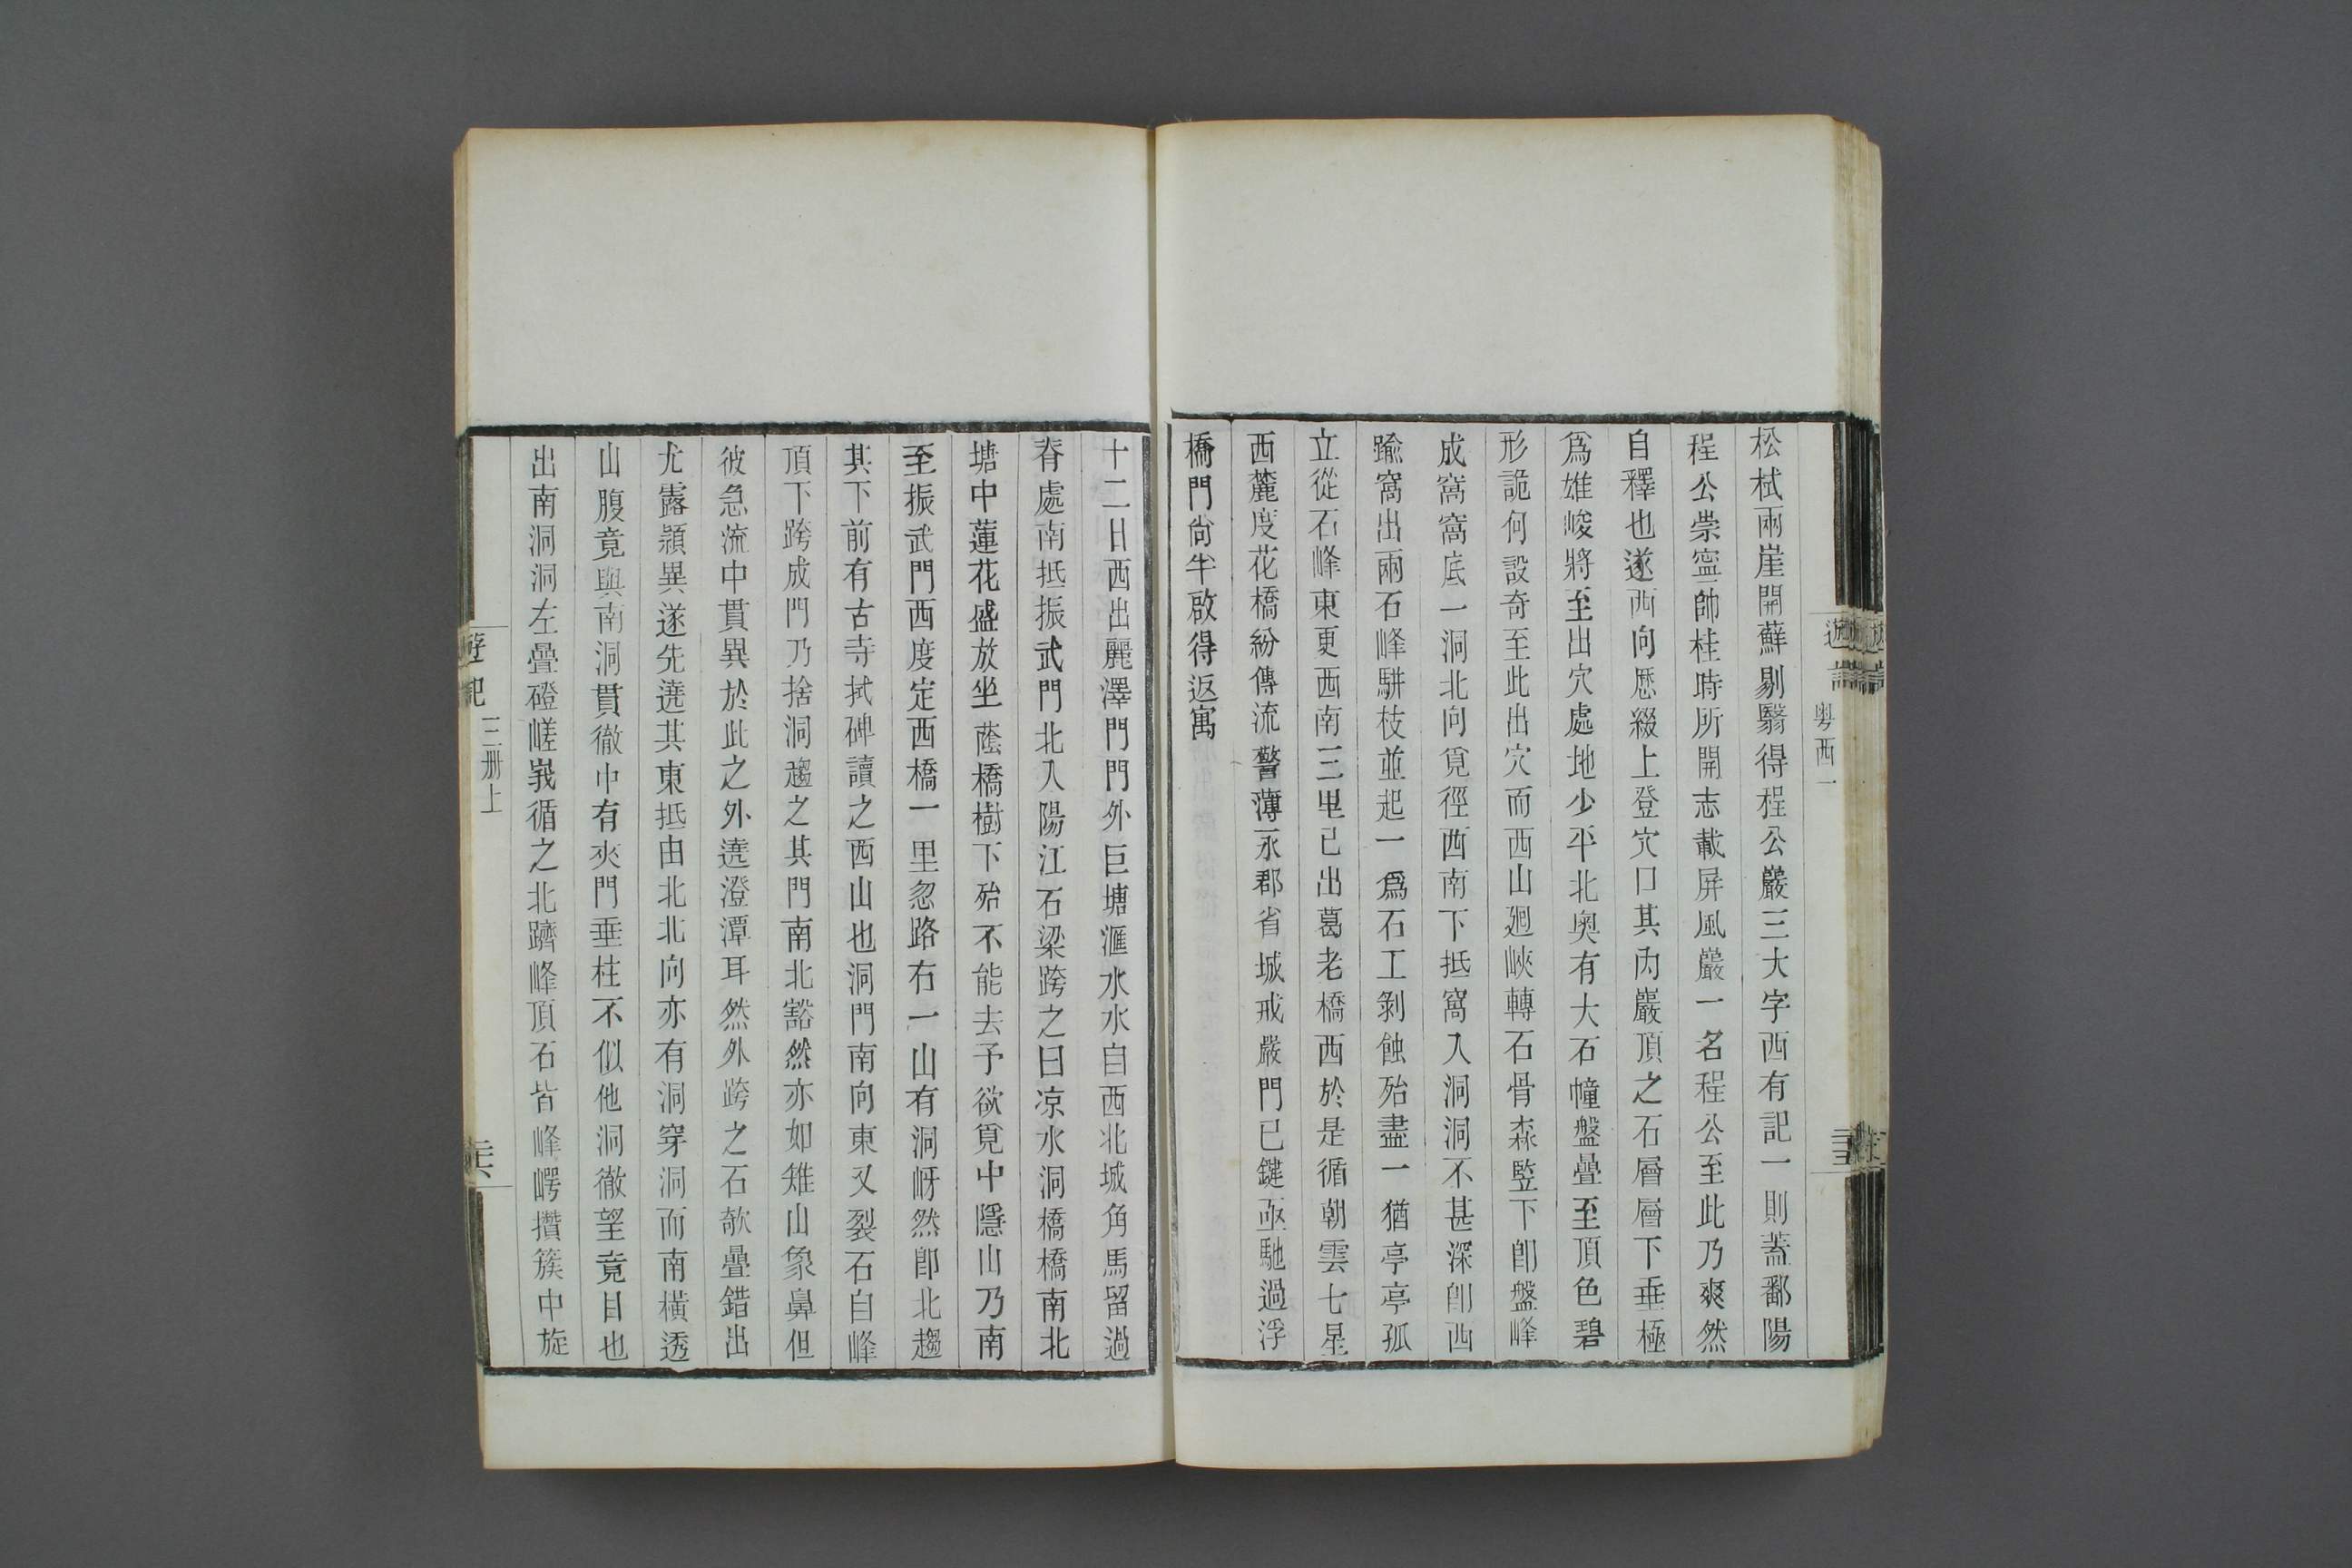 粤西一
松栻兩崖開蘚剔翳得程公巖三大字西有記一則蓋鄱陽
程公崇寧帥桂時所開志載屏風巖一名程公至此乃爽然
自釋也遂西向歷綴上登穴口其內巖頂之石層層下垂極
爲雄峻將至出穴處地少平北奥有大石幢盤疊至頂色碧
形詭何設奇至此出穴而西山廻峽轉石骨森竪下卽盤峰
成窩窩底一洞北向覓徑西南下抵窩入洞洞不甚深卽西
踰窩出兩石峰駢枝並起一爲石工剝蝕殆盡一猶亭亭孤
立從石峰東更西南三里已出葛老橋西於是循朝雲七星
西麓度花橋紛傳流警薄永郡省城戒嚴門已鍵亟馳過浮
橋門尙半啟得返寓
十二日西出麗澤門門外巨塘滙水水自西北城角馬留過
脊處南抵振武門北入陽江石梁跨之曰凉水洞橋橋南北
塘中蓮花盛放坐蔭橋樹下殆不能去予欲覓中隱山乃南
至振武門西度定西橋一里忽路右一山有洞岈然卽北趨
其下前有古寺拭碑讀之西山也洞門南向東又裂石自峰
頂下跨成門乃捨洞趨之其門南北豁然亦如雉山象鼻但
彼急流中貫異於此之外遶澄潭耳然外跨之石欹疊錯出
尤露穎異遂先遶其東抵由北北向亦有洞穿洞而南橫透
山腹竟與南洞貫徹中有夾門垂柱不似他洞徹望竟目也
出南洞洞左疊磴嵯峩循之北躋峰頂石皆峰崿攢簇中旋
遊記
三册上